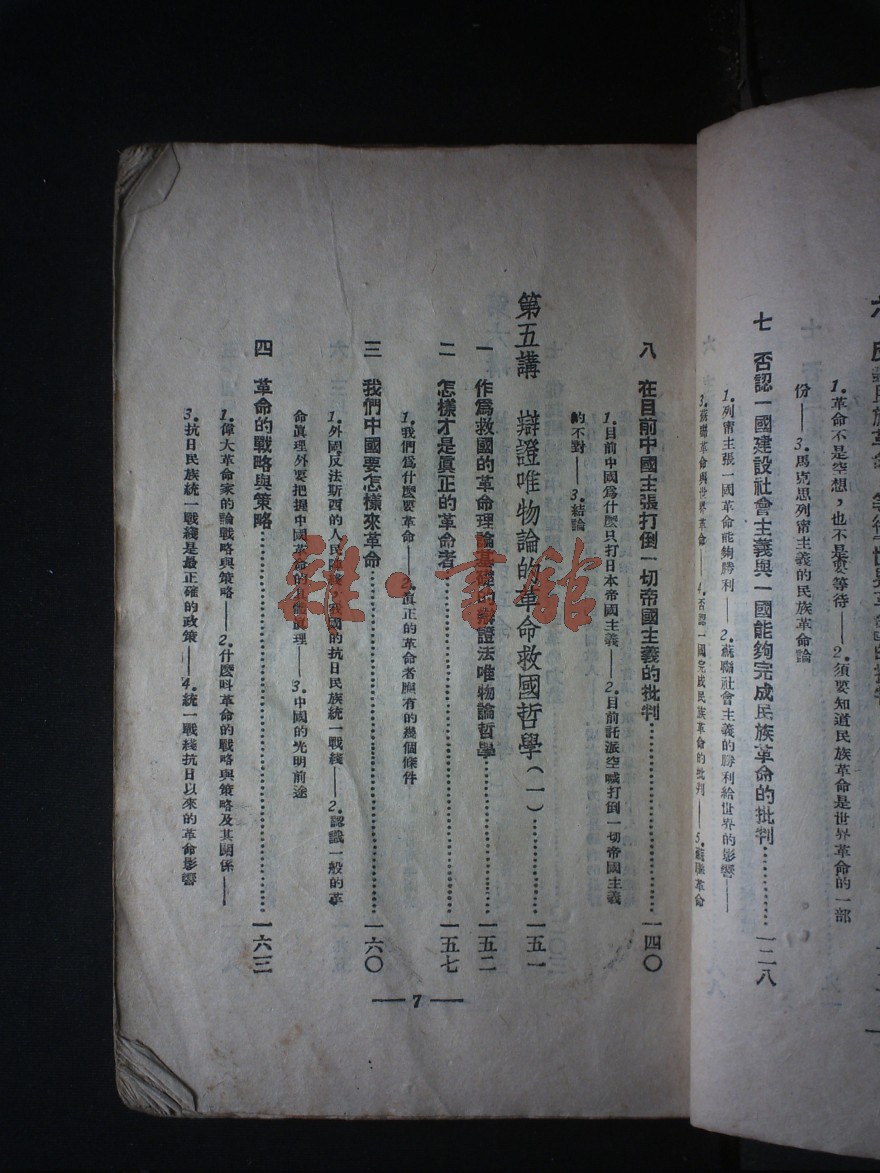 1.革命不是空想，也不是要等待——2.須要知道民族革命是世界革命的一部
份——3.馬克思列甯主義的民族革命論
七　否認一國建設社會主義與一國能夠完成民族革命的批判…………一二八
1.列甯主張一國革命能夠勝利——2.蘇聯社會主義的勝利給世界的影響——
3.蘇聯革命與世界革命——4.否認一國完成民族革命的批判——5.蘇聯革命
八　在目前中國主張打倒一切帝國主義的批判…………一四〇
1.目前中國爲什麼只打日本帝國主義——2.目前託派空喊打倒一切帝國主義
的不對——3.結論
第五講　辯證唯物論的革命救國哲學（一）…………一五一
一　作爲救國的革命理論基礎的辯證法唯物論哲學…………一五二
二　怎樣才是眞正的革命者…………一五七
1.我們爲什麼要革命——2.眞正的革命者應有的幾個條件
三　我們中國要怎樣來革命…………一六〇
1.外國反法斯西的人民陣綫，我國的抗日民族統一戰綫——2.認識一般的革
命眞理外要把握中國革命的具體眞理——3.中國的光明前途
四　革命的戰略與策略…………一六三
1.偉大革命家的論戰略與策略——2.什麼叫革命的戰略與策略及其關係——
3.抗日民族統一戰綫是最正確的政策——4.統一戰綫抗日以來的革命影響
— 7 —
雜·書舘